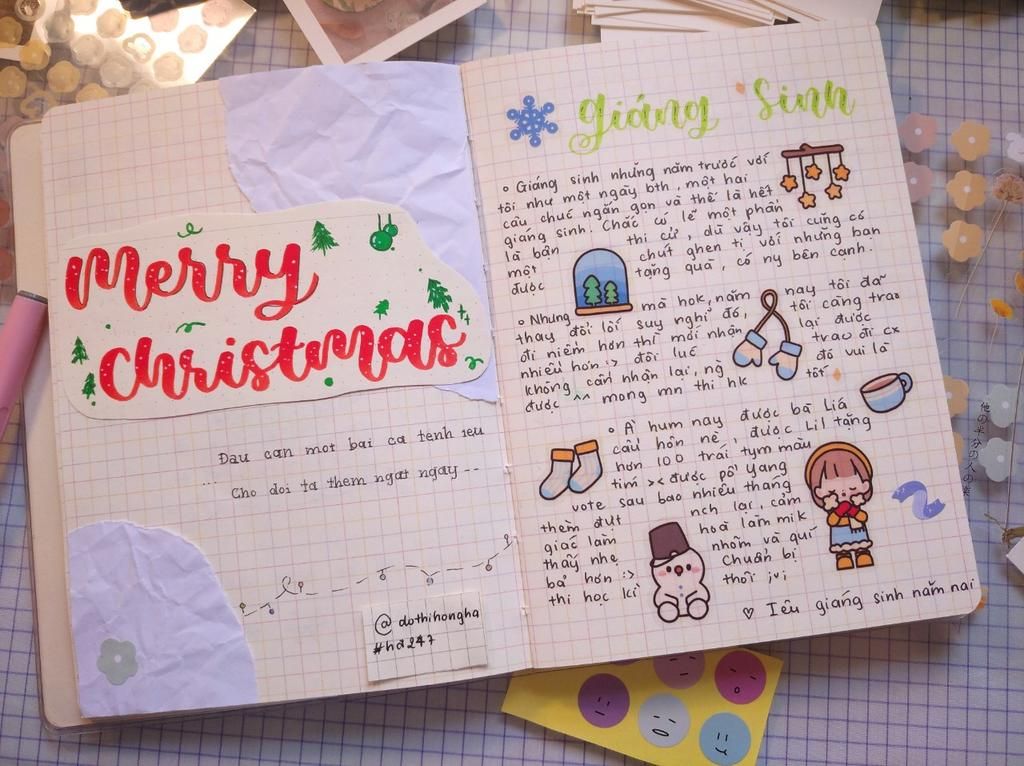 Merry
Christmas
Đau can mot bai ca tenh ieu
... Cho doi ta them ngat ngay --
@dothihongha
#hd247
Giáng Sinh
Giáng sinh những năm trước với
tôi như một ngày bth, một hai
câu chúc ngắn gọn và thế là hết
giáng sinh. Chắc có lẽ một phần
là bận thi cử, dũ vậy tôi cũng có
một chút ghen tị với những bạn
được tặng quà, có ny bên cạnh.
Nhưng mà hok, năm nay tôi đã
thay đổi lối suy nghĩ đó, tôi càng trao
đi niềm hơn thì mới nhận lại được
nhiều hơn :> đôi lúc trao đi cx
không cần nhận lại, ng đó vui là
được ^^ mong mn thi hk tốt
À hum nay được bà Liá
cầu hôn nè, được Lil tặng
hơn 100 trái tym màu
tím >< được pồ Yang
vote sau bao nhiêu tháng
thèm đựt nch lại, cảm
giác làm hoà làm mik
thấy nhẹ nhõm và quí
bả hơn :> Chuẩn bị
thi học kì thôi jvj
♡ Iêu giáng sinh năm nai
他の半分の人の